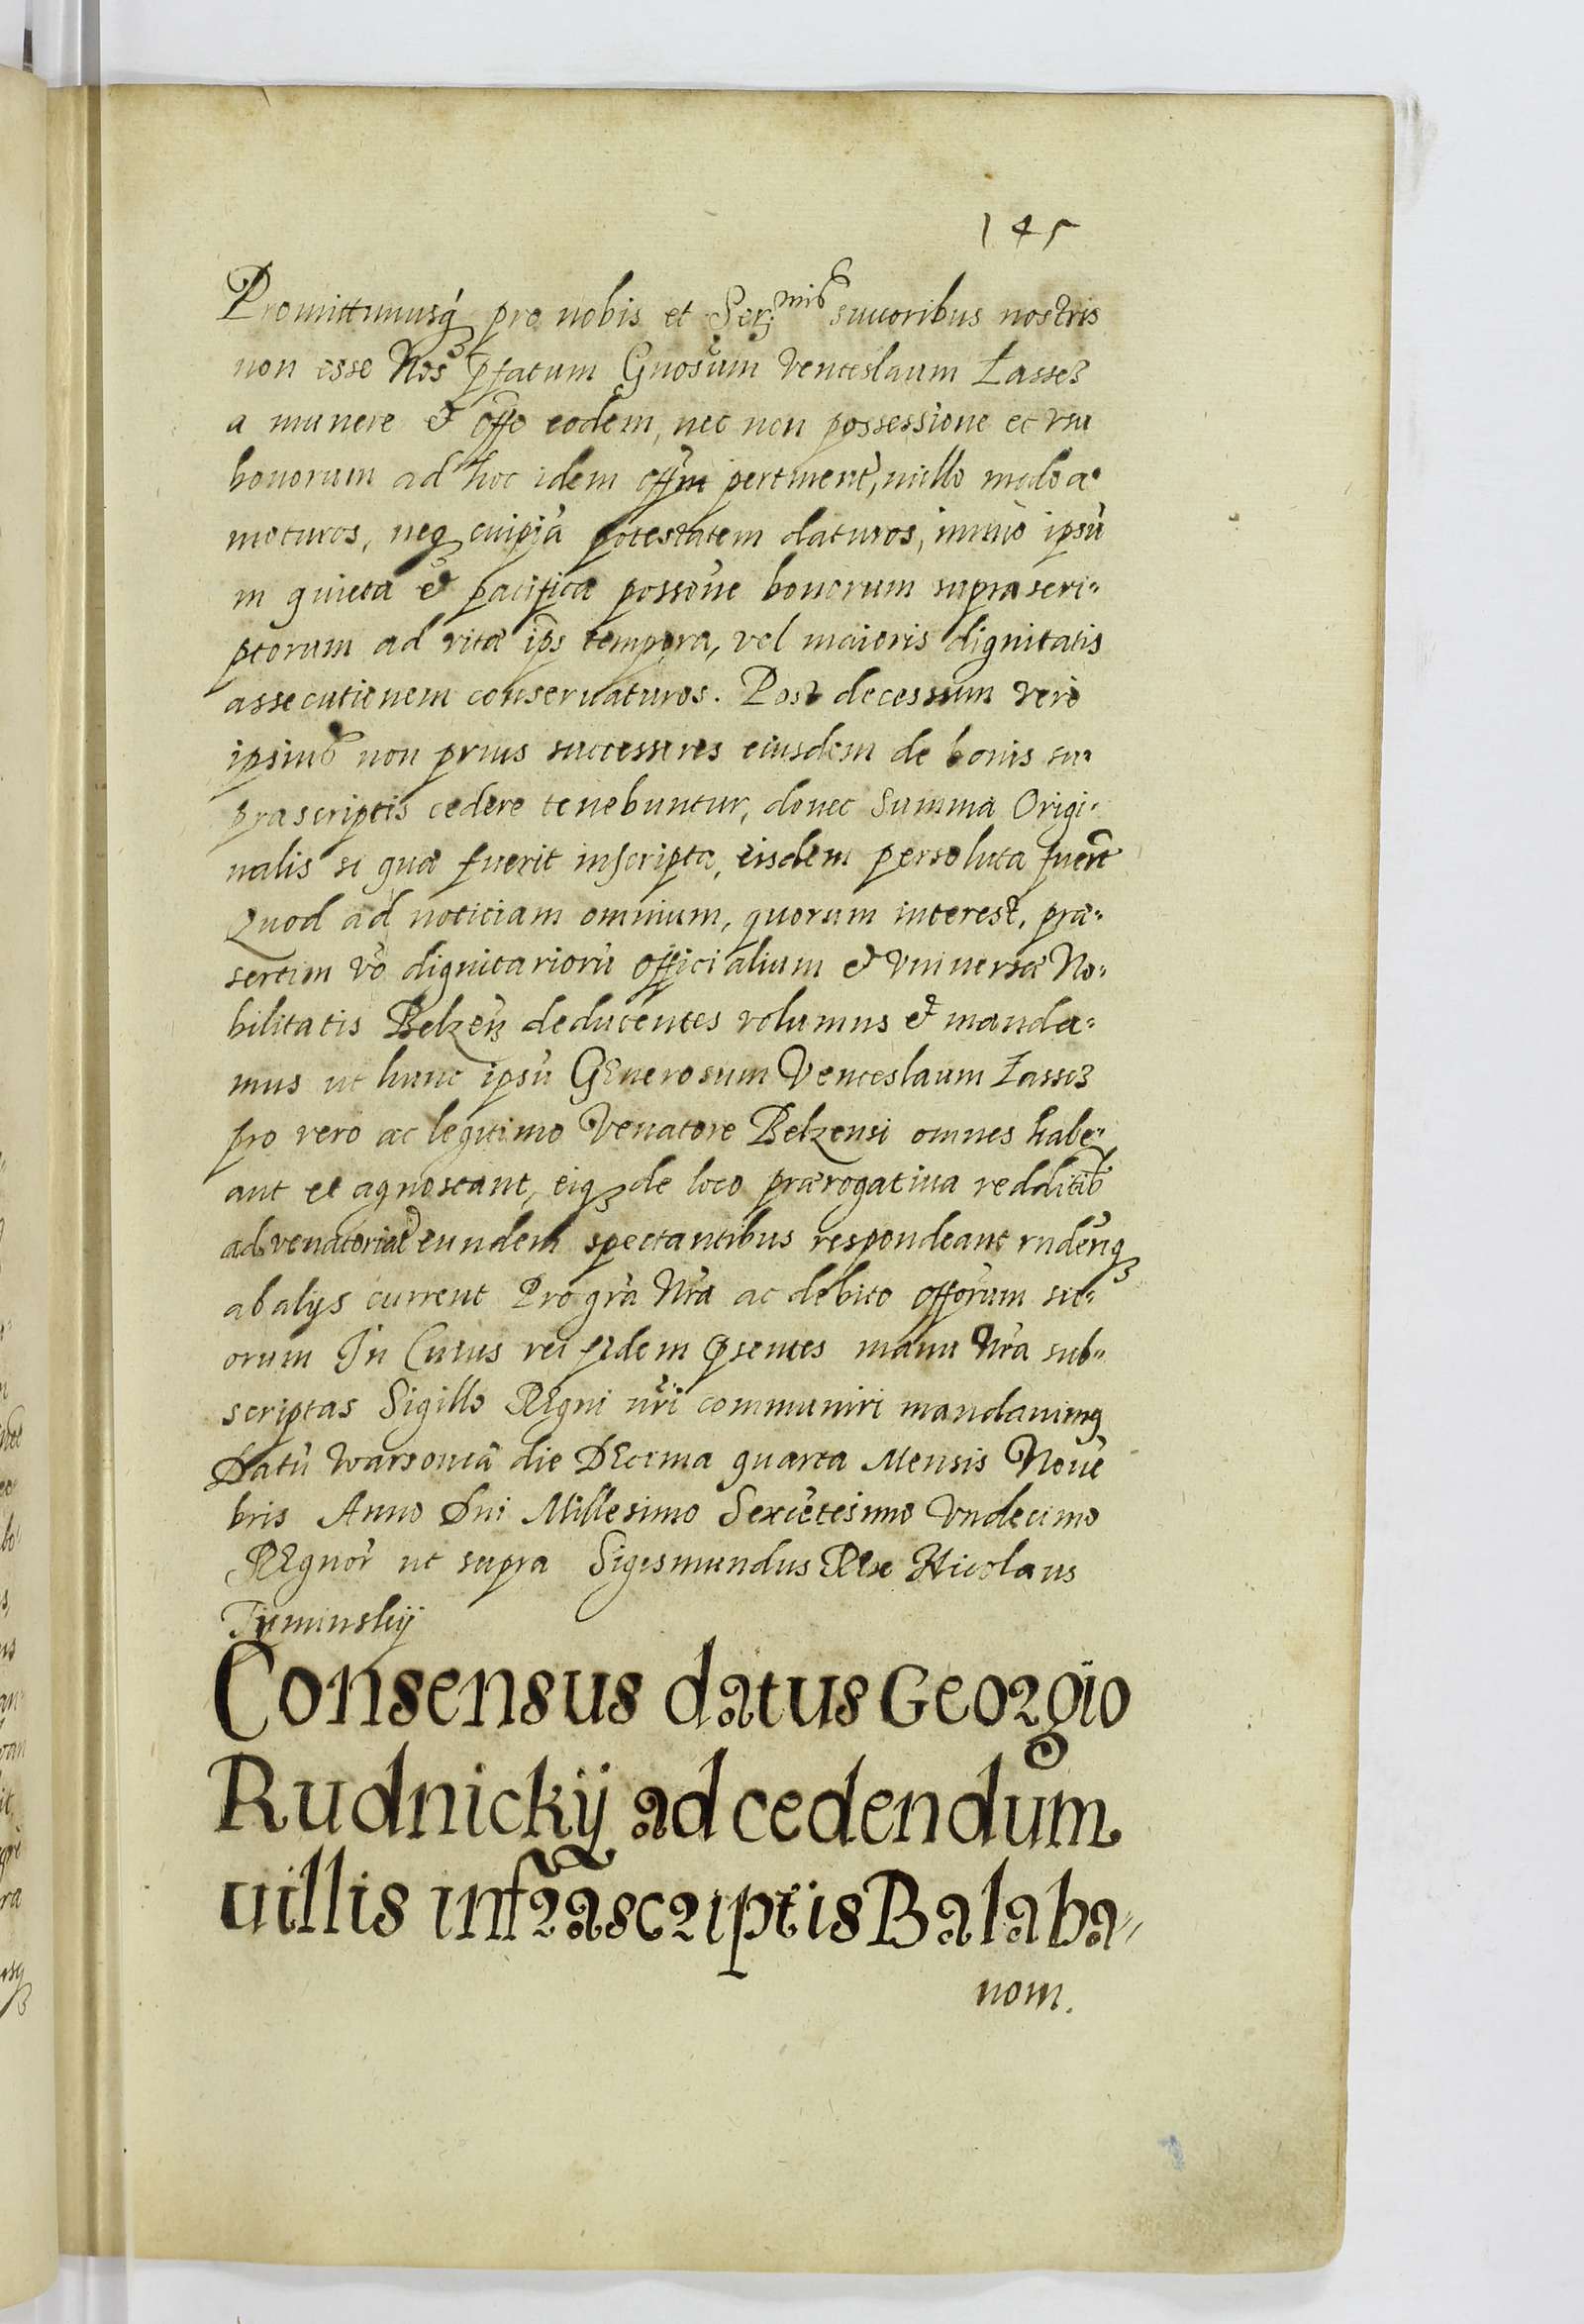 145
Promittimusq́ꝫ pro nobis et Serꝫmis succoribus nostris
non esse Nos p̱fatum Gnosum Venceslaum Łasscz
a munere et offo eodem, nec non possessione et vsu
bonorum ad hoc idem offm pertinentˀ, nullo modo a⸗
moturos, neqꝫ cuipiã potestatem daturos, immo ipsũ
in quieta et pacifica possone bonorum suprascri⸗
ptorum ad vitæ ips tempora, vel maioris dignitatis
assecutionem conseruaturos. Post decessum vero
ipsius non prius successores eiusdem de bonis su⸗
prascriptis cedere tenebuntur, donec Summa Origi⸗
nalis si quæ fuerit inscripta, eisdem persoluta fuerit
Quod ad noticiam omnium, quorum interest, præ⸗
sertim vo dignitariorũ officialium et Vniuersæ No⸗
bilitatis Belzen deducentes volumus et manda⸗
mus ut hunc ipsũ GEnerosum Venceslaum Łasscz
pro vero ac legitimo Venatore Belzensi omnes habe⸗
ant et agnoscant, eiqꝫ de loco prærogatiua redditib
ad venatoriæ eundem spectantibus respondeant rnderiqꝫ
ab alijs current Pro gra Nra ac debito offorum su⸗
orum In Cuius rei fidem p̱sentes manu Nra sub⸗
scriptas Sigillo REgni nri communiri mandauimq
Datũ Warsouiæ die DEcima quarta Mensis Nouẽ
bris Anno Dni Millesimo Sexcẽtesimo Vndecimo
REgnor ut supra Sigismundus REx Nicolaus
Tuminskij
Consensus datus Georgio
Rudnickij ad cedendum
uillis infrascriptis Balaba⸗
nom.